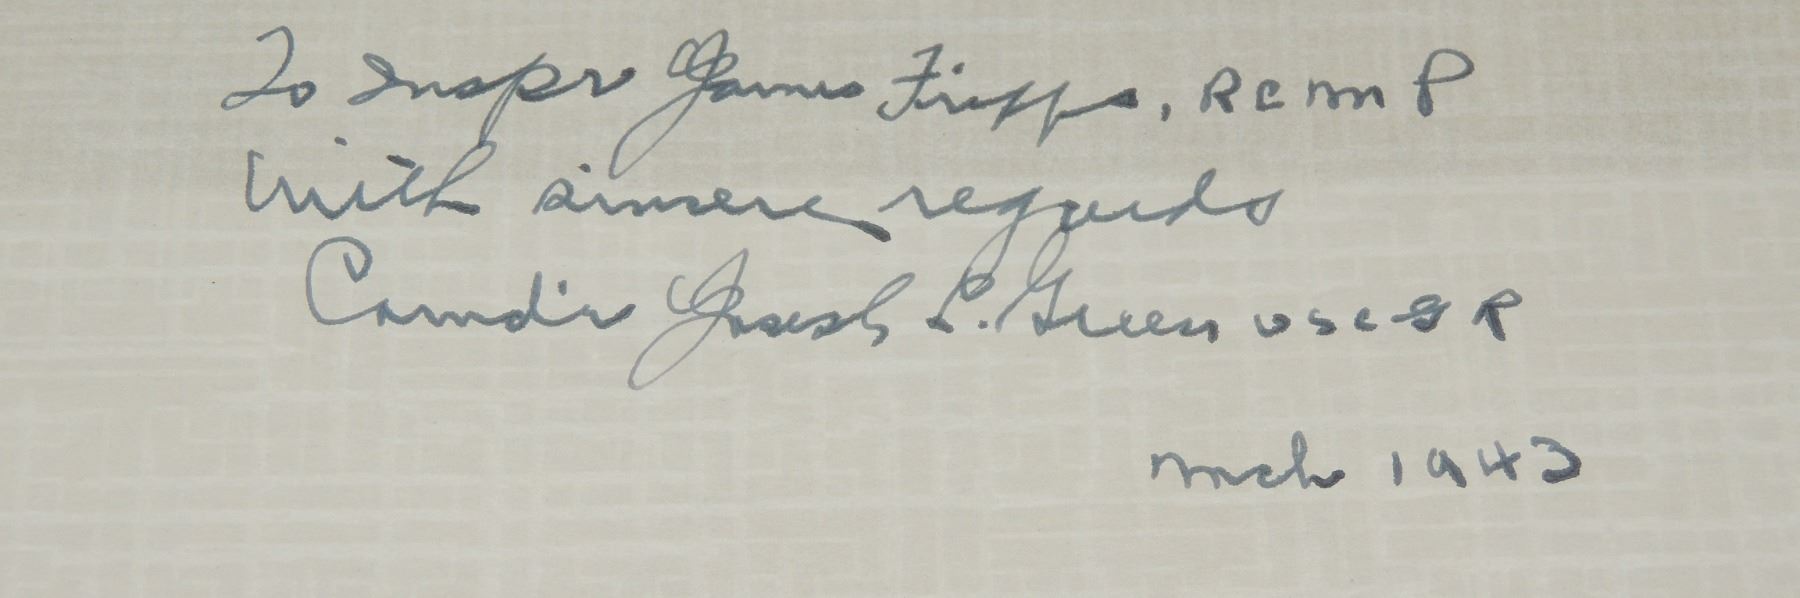 To Inspr James Fripps, RCMP
With sincere regards
Comd'r Joseph L. Green USCGR
Mch 1943